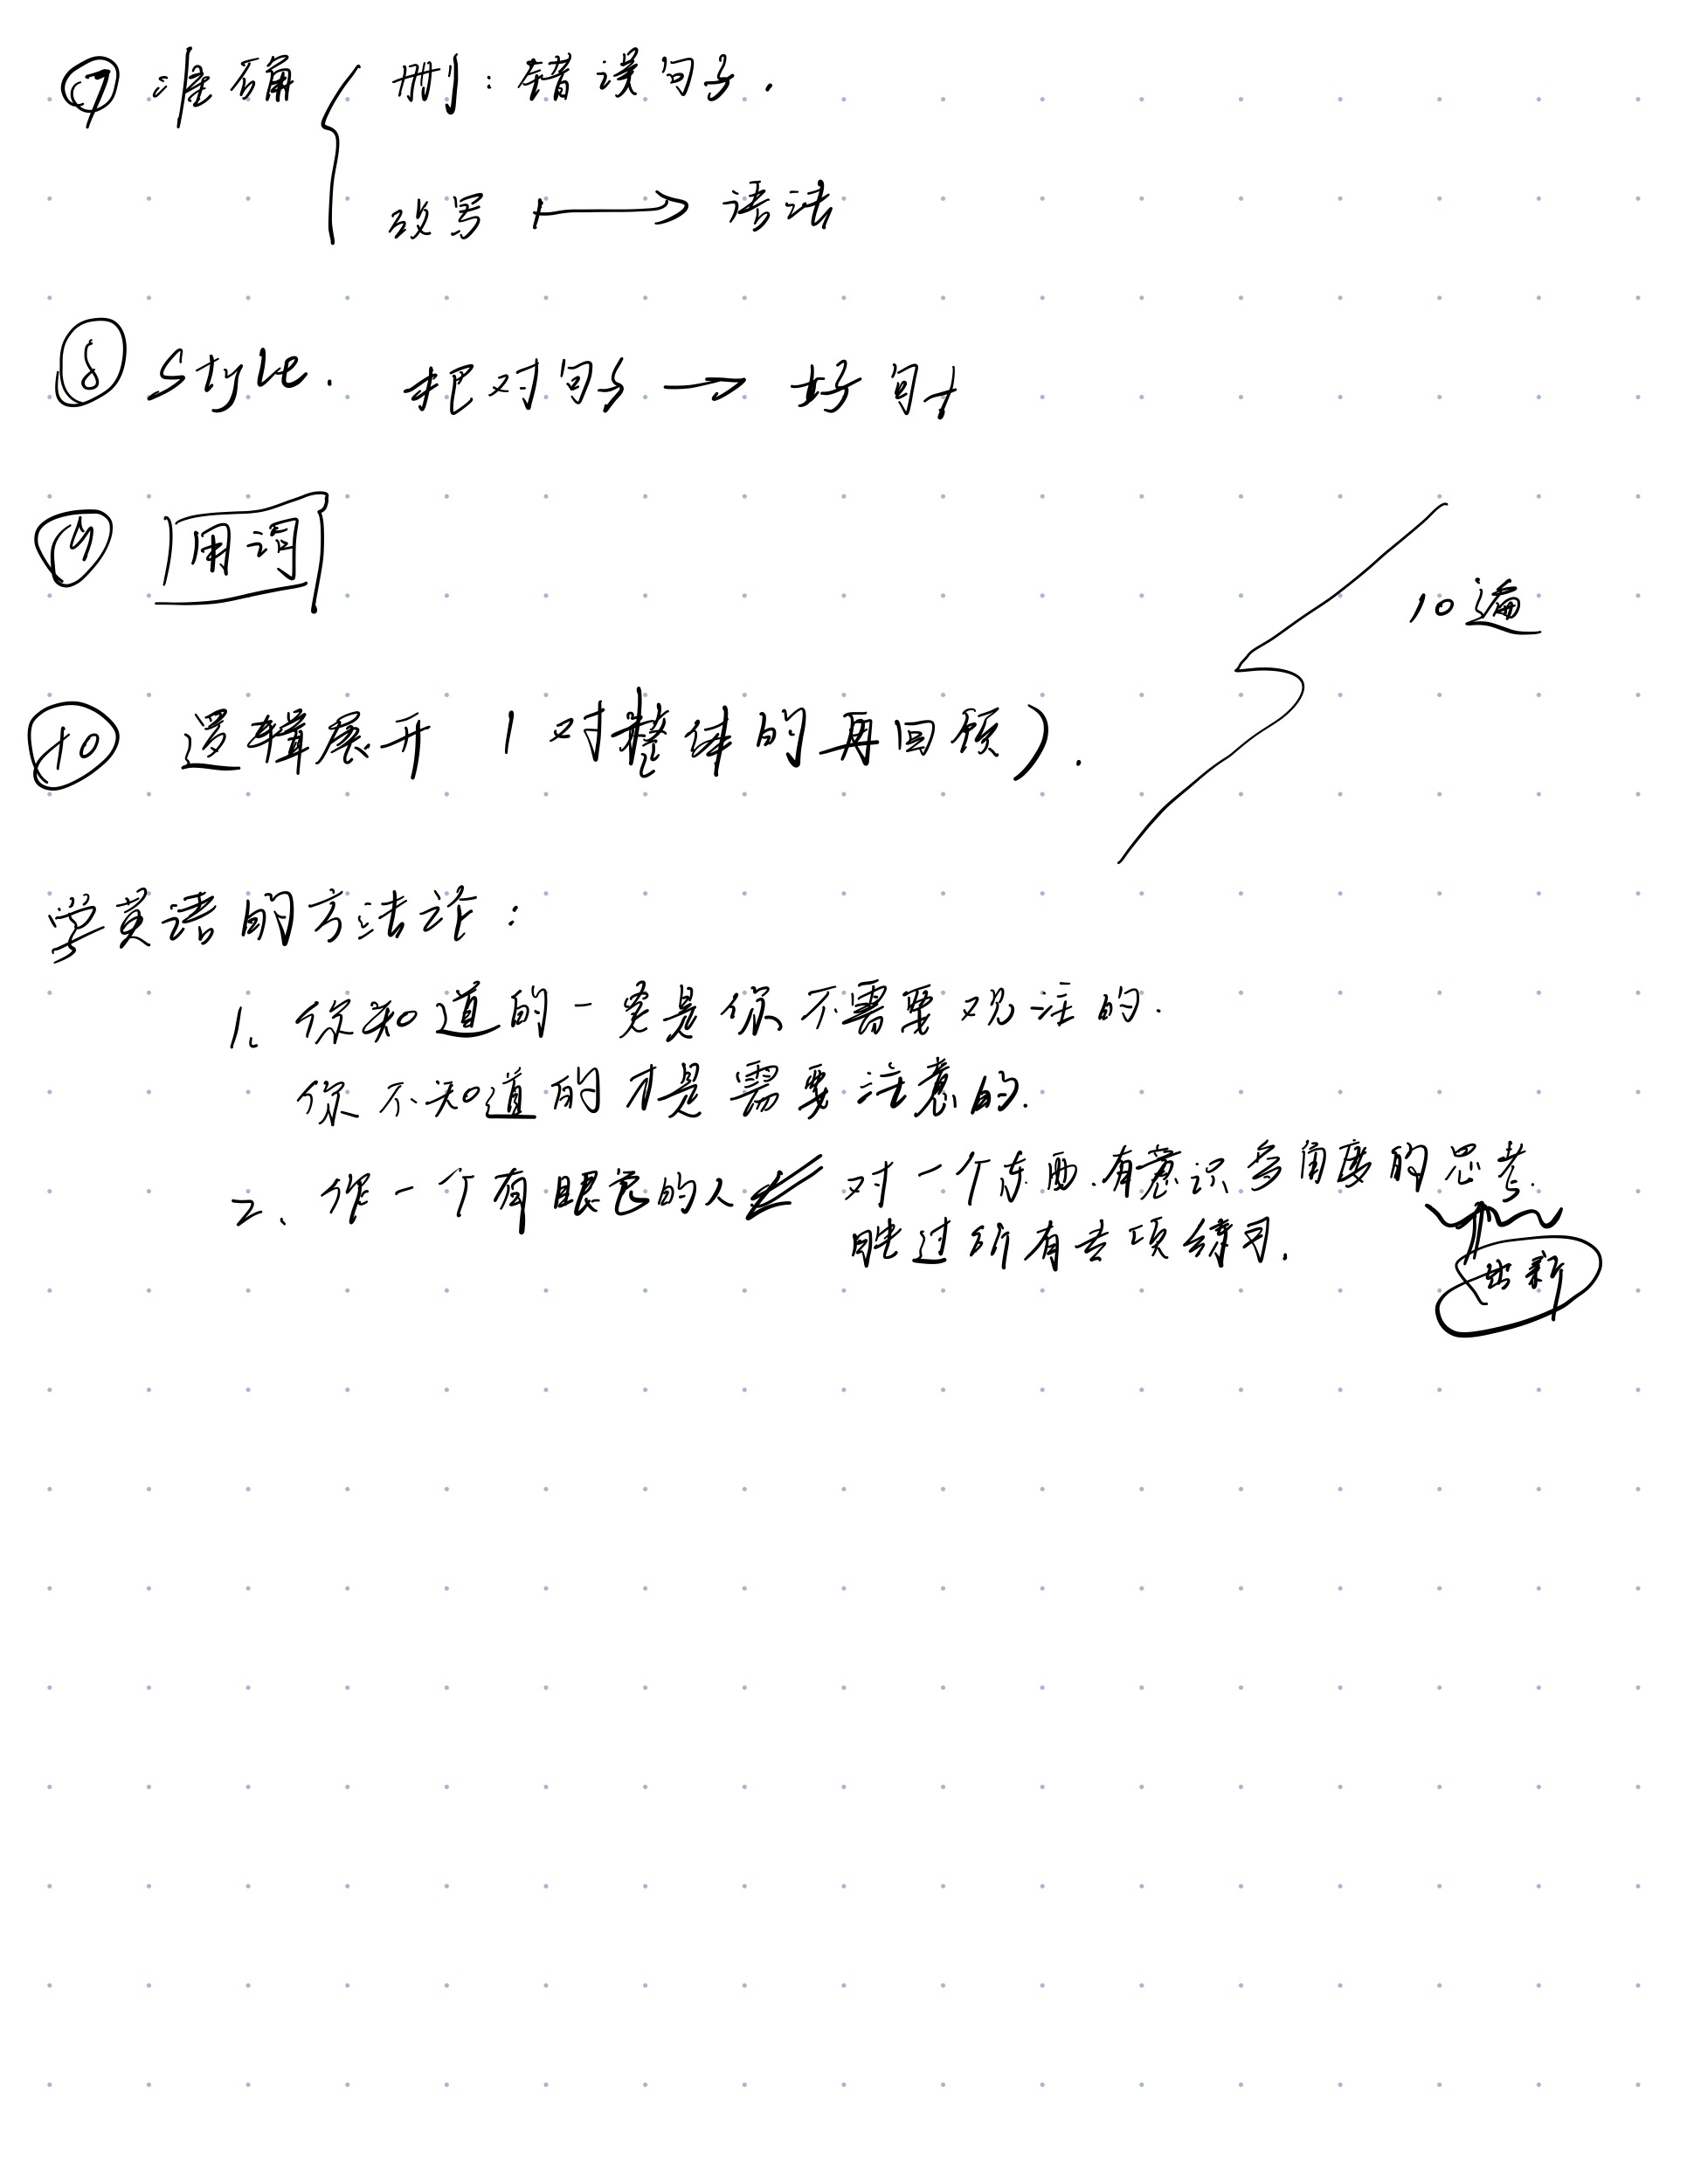 ⑦ 准确 { 删：错误句子.
改写 ⟼ 语法
⑧ Style. 把对句子 → 好句子
⑨ 用词
10遍
⑩ 逻辑展开（对整体的再回顾）.
学英语的方法论：
1. 你知道的一定是你不需要关注的.
你不知道的才是需要注意的.
2. 作一个有眼色的人 ⇐ 对一个东西.有意识多角度的思考.
胜过所有专项练习.
出新